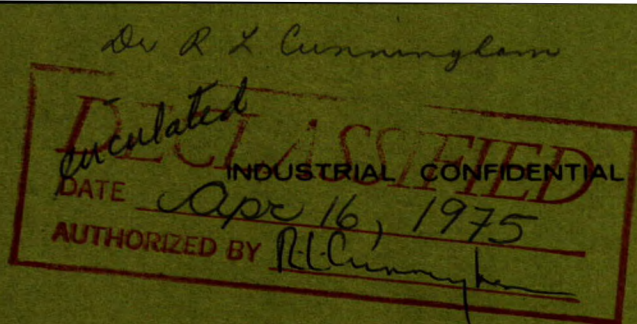 Dr R L Cunningham
circulated
DECLASSIFIED
INDUSTRIAL CONFIDENTIAL
DATE Apr 16, 1975
AUTHORIZED BY R.L. Cunningham